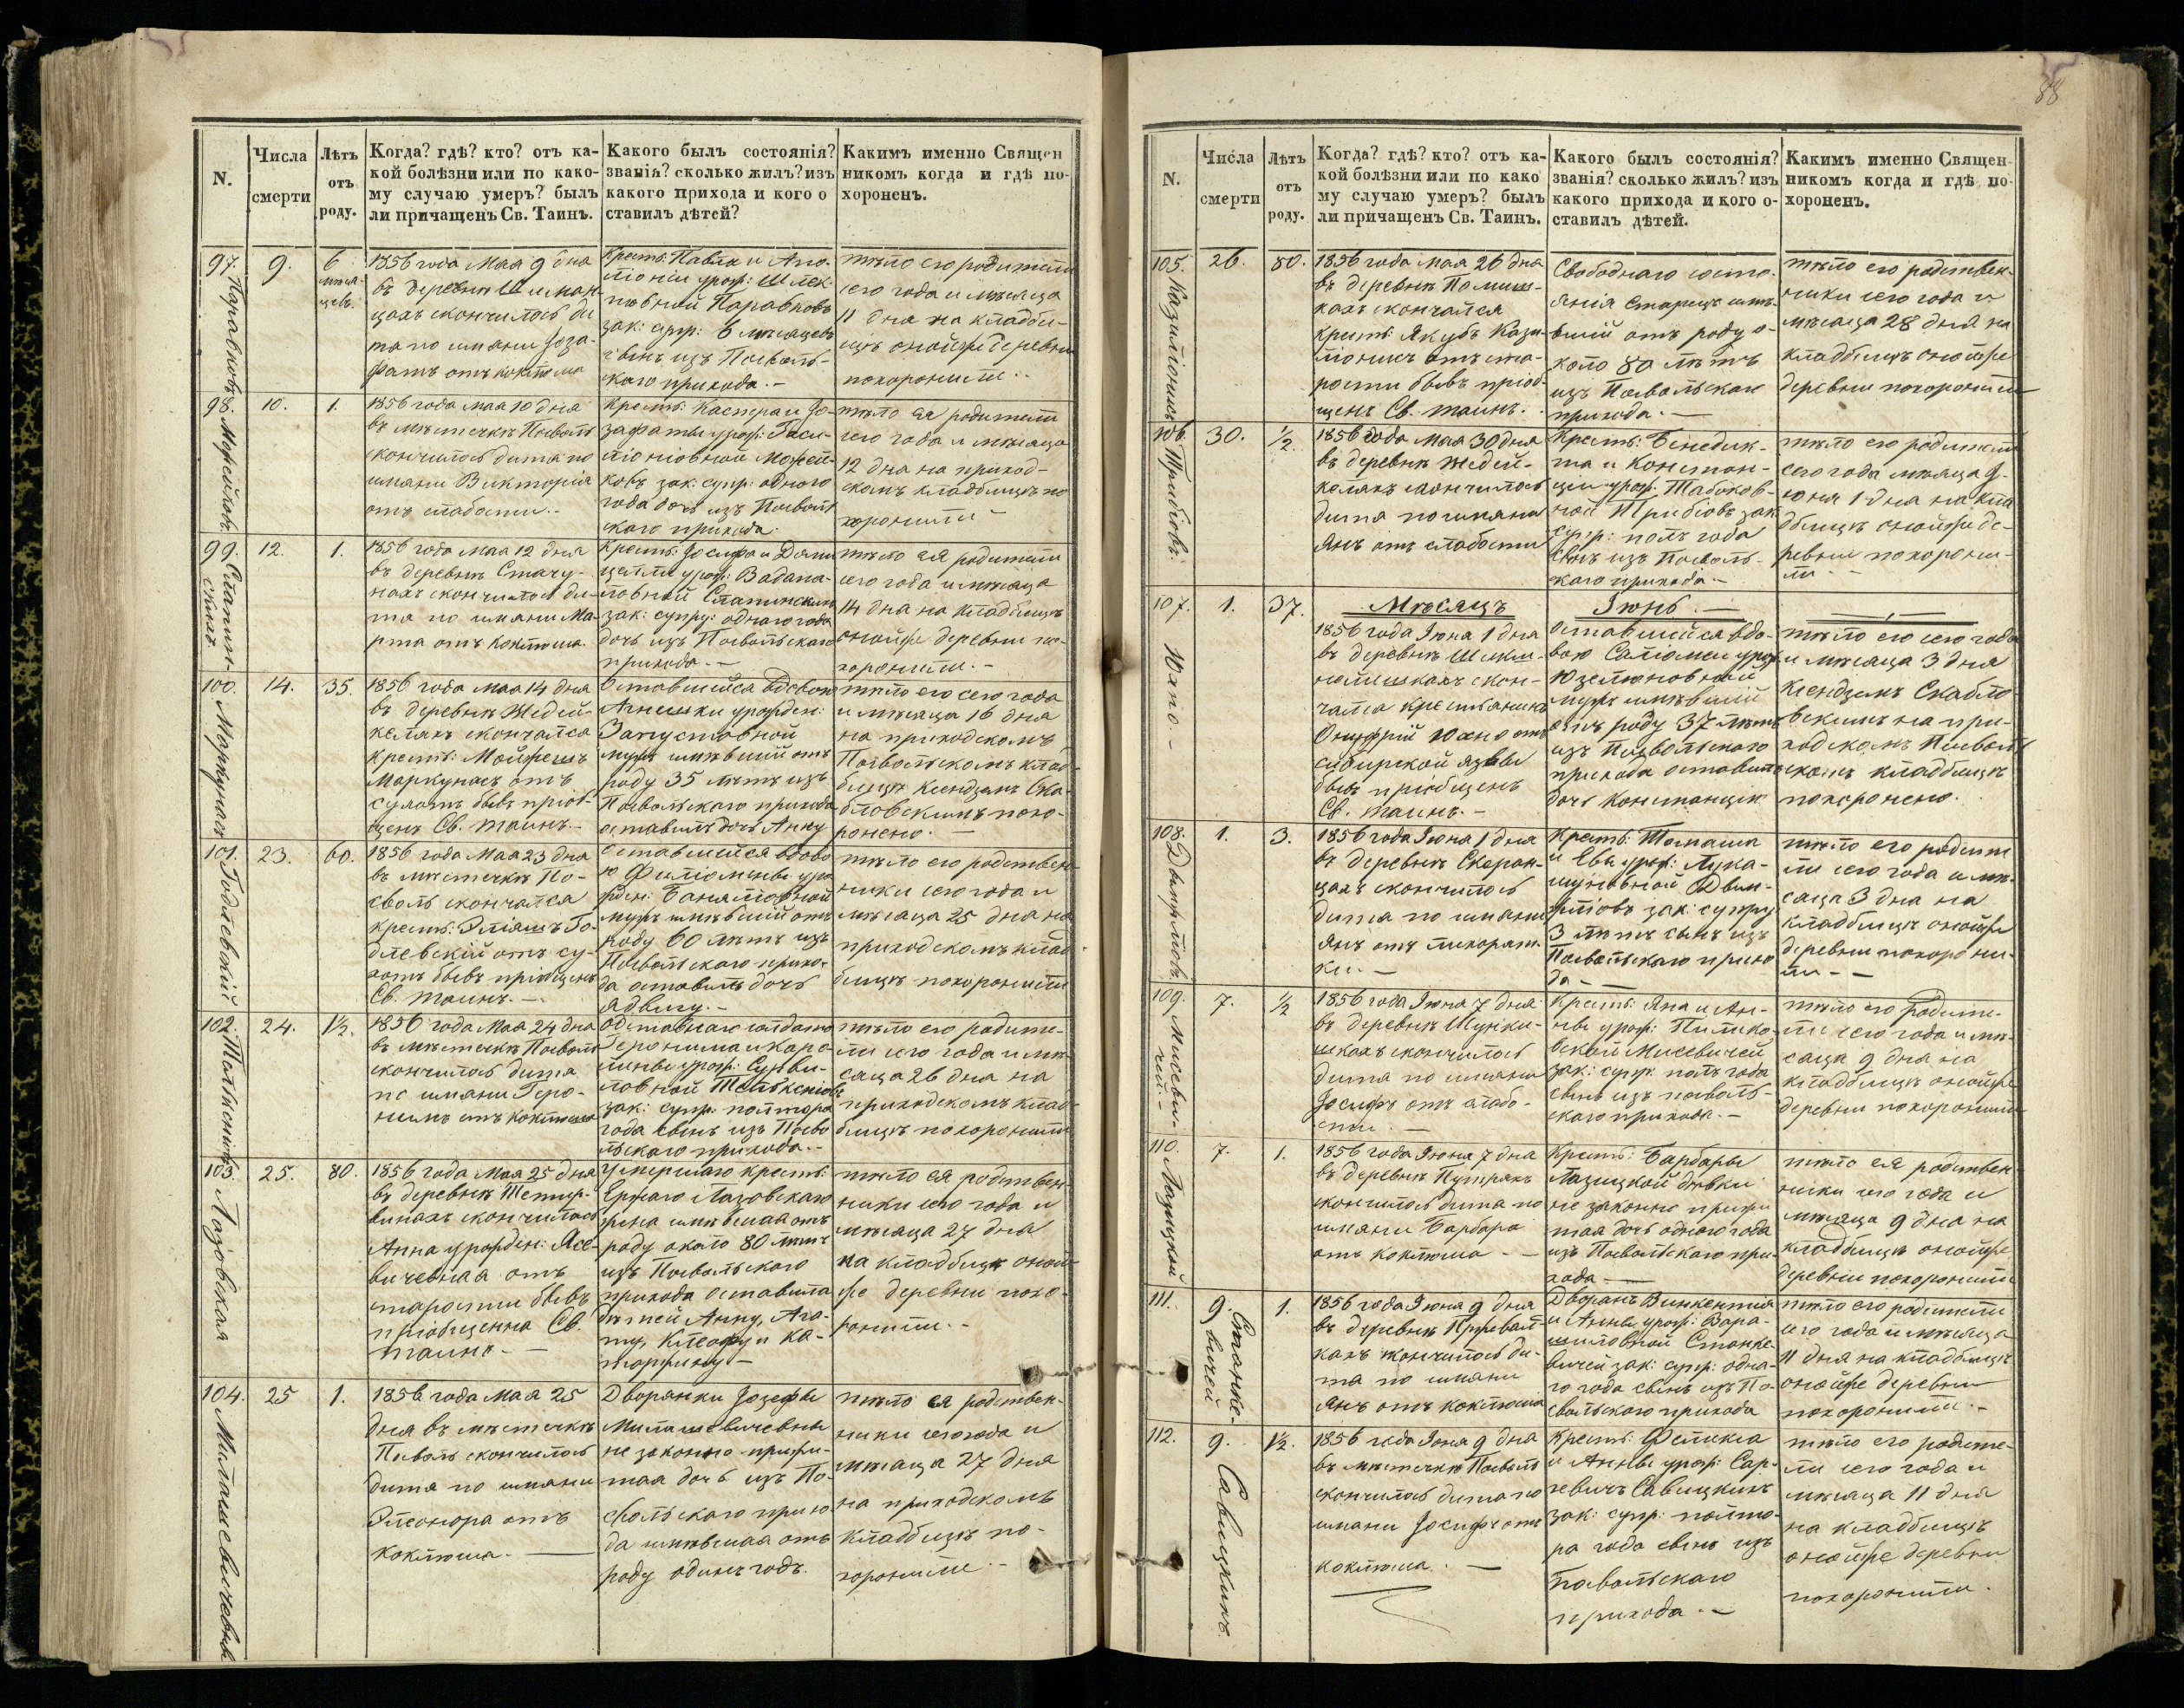 88
N.
Числа
смерти
Лѣтъ
отъ
роду.
Когда? гдѣ? кто? отъ ка-
кой болѣзни или по како-
му случаю умеръ? былъ
ли причащенъ Св. Таинъ.
Какого былъ состоянія?
званія? сколько жилъ? изъ
какого прихода и кого о
ставилъ дѣтей?
Какимъ именно Священ
никомъ когда и гдѣ по-
хороненъ.
97.
9.
6
мѣся-
цевъ.
1856 года Мая 9 дна
въ деревнѣ
цахъ скончилось ди
та по имани Іоза-
фатъ отъ коклюша
Крестъ: Павла и Апо-
лоніи урож:
Паравковъ
зак: супр: 6 мѣсяцевъ
сынъ изъ Посволь-
скаго прихода.-
тѣло его родители
сего года и мѣсяца
11 дна на кладби-
щѣ онойже деревни
похоронили.
98. Можейковъ.
10.
1.
1856 года мая 10 дна
въ мѣстечкѣ Посволь
скончилось дита по
имани Викторія
отъ слабости.-
Крестъ: Каспера и Іо-
зафаты урож:
Можей-
ковъ зак: супр: одного
года дочь изъ Посволь
скаго прихода.
тѣло ея родители
сего года и мѣсяца
12 дна на приход-
скомъ кладбищѣ по
хоронили
99.
12.
1.
1856 года мая 12 дна
въ деревнѣ Стачу-
нахъ скончилось ди-
та по имани Ма-
рта отъ коклюша.
Крестъ: Іосифа и Доми
цели урож:
зак: супру: одного года
дочь изъ Посвольскаго
прихода.-
тѣло ея родители
сего года и мѣсяца
14 дна на кладбищѣ
онойже деревни по-
хоронили.-
100. Маркунасъ
14.
35.
1856 года мая 14 дна
въ деревнѣ Жедей-
келахъ скончался
Крестъ: Мойжешъ
Маркунасъ отъ
сухотъ бывъ пріоб-
щенъ Св. таинъ.-
Оставшейся вдовою
Агнешки урожден:
Запустовной
мужъ имѣвшій отъ
роду 35 лѣтъ изъ
Посвольскаго прихода
оставилъ дочь Анну
тѣло его сего года
и мѣсяца 16 дна
на приходскомъ
Посвольскомъ клад-
бищѣ Ксендзомъ Ска-
бловскимъ похо-
ронено.-
101. Годлевскій
23.
60.
1856 года Мая 23 дна
въ мѣстечкѣ По-
сволѣ скончался
крестъ: Эліашъ Го-
длевскій отъ су-
хотъ бывъ пріобщенъ
Св. таинъ.-
оставшейся вдово
ю Филомены уро
жден:
мужъ имѣвшій отъ
роду 60 лѣтъ изъ
Посвольскаго прихо-
да оставилъ дочь
Ядвигу.-
тѣло его родствен
ники сего года и
мѣсяца 25 дна на
приходскомъ клад
бищѣ похоронили
102.
24.
1½.
1856 года Мая 24 дна
въ мѣстечкѣ Посволь
скончилось дита
по имани Геро-
нимъ отъ коклюша
отставнаго солдата
Геронима и Каро-
лины урож:
зак: супр: полтора
года сынъ изъ Посво
льскаго прихода.-
тѣло его родите-
ли сего года и мѣ-
саца 26 дна на
приходскомъ клад-
бищѣ похоронили
103. Лазовская
25.
80.
1856 года Мая 25 дна
въ деревнѣ Тетир-
винахъ скончилась
Анна урожден: Ясе-
вичевная отъ
старости бывъ
пріобщенна Св.
таинъ.-
умершаго крестъ:
Ержаго Лазовскаго
жена имѣвшая отъ
роду около 80 лѣтъ
изъ Посвольскаго
прихода оставила
дѣтей Анну, Ага-
ту, Клеофу и Ка-
таржину-
тѣло ея родствен-
ники сего года и
мѣсяца 27 дна
на кладбищѣ оной-
же деревни похо-
ронили.-
104. Милашевичевны
25
1.
1856 года Мая 25
дна въ мѣстечкѣ
Посволь скончилось
дита по имани
Элеонора отъ
коклюша.-
Дворянки Іозефы
Милашевичевны
не законно прижи-
тая дочь изъ По-
свольскаго прихо
да имѣвшая отъ
роду одинъ годъ.
тѣло ея родствен-
ники сего года и
мѣсяца 27 дна
на приходскомъ
кладбищѣ по-
хоронили-
N.
Числа
смерти
Лѣтъ
отъ
роду.
Когда? гдѣ? кто? отъ ка-
кой болѣзни или по како
му случаю умеръ? былъ
ли причащенъ Св. Таинъ.
Какого былъ состоянія?
званія? сколько жилъ? изъ
какого прихода и кого о-
ставилъ дѣтей.
Какимъ именно Священ-
никомъ когда и гдѣ по-
хороненъ.
105. Казиліонисъ
26.
80.
1856 года мая 26 дна
въ деревнѣ
кахъ скончался
крестъ: Якубъ Кази-
ліонисъ отъ ста-
рости бывъ пріоб-
щенъ Св. таинъ.
Свободнаго состо-
янія старецъ имѣ-
вшій отъ роду о-
коло 80 лѣтъ
изъ Посвольскаго
прихода.-
тѣло его родствен-
ники сего года и
мѣсяца 28 дня на
кладбищѣ онойже
деревни похоронили
106.
30.
½.
1856 года мая 30 дна
въ деревнѣ Жедей-
келахъ скончилось
дита по имани
Янъ отъ слабости
Крестъ: Бенедик-
та и Констан-
ціи урож:
зак
супр: полъ года
сынъ изъ Посволь-
скаго прихода.-
тѣло его родители
сего года мѣсяца І-
юня 1 дна на кла
дбищѣ онойже де-
ревни похорони-
ли-
Мѣсяцъ Іюнь.-
107. Юхно.-
1.
37.
1856 года Іюна 1 дна
въ деревнѣ
скон-
чался крестьянинъ
Онуфрій Юхно отъ
сибирской язвы
бывъ пріобщенъ
Св. таинъ.-
оставшейся вдо-
вою Саломеи урож
мужъ имѣвшій
отъ роду 37 лѣтъ
изъ Посвольскаго
прихода оставилъ
дочь Констанцію
тѣло его сего года
и мѣсяца 3 дна
Ксендзомъ Скабло-
вскимъ на при-
ходскомъ Посволь
скомъ кладбищѣ
похоронено.
108.
1.
3.
1856 года Іюна 1 дна
въ деревнѣ Скоран-
цахъ скончилось
дита по имани
Янъ отъ лихорат-
ки.-
Крестъ: Томаша
и Евы урож:
зак: супру
3 лѣтъ сынъ изъ
Посвольскаго прихо
да-
тѣло его родите
ли сего года и мѣ-
саца 3 дна на
кладбищѣ онойже
деревни похорони-
ли-
109. Мисеви-
чей.-
7.
½
1856 года Іюна 7 дна
въ деревнѣ
шкахъ скончилось
дита по имани
Іосифъ отъ слабо-
сти.-
Крестъ: Яна и Ан-
ны урож:
Мисевичей
зак: супр: полъ года
сынъ изъ посволь-
скаго прихода.-
тѣло его родите-
ли сего года и мѣ-
саца 9 дна на
кладбищѣ онойже
деревни похоронили
110. Лазицкой
7.
1.
1856 года Іюна 7 дна
въ деревнѣ Путрахъ
скончилось дита по
имани Барбара
отъ коклюша-
Крестъ: Барбары
Лазицкой дѣвки
не законно прижи
тая дочь одного года
изъ Посвольскаго при-
хода-
тѣло ея родствен-
ники сего года и
мѣсяца 9 дна на
кладбищѣ онойже
деревни похоронили
111. Станке-
вичей
9.
1.
1856 года Іюна 9 дна
въ деревнѣ
кахъ скончилось ди-
та по имани
Янъ отъ коклюша
Дворянъ Винкентія
и Анны урож:
Станке-
вичей зак: супр: одна-
го года сынъ изъ По-
свольскаго прихода
тѣло его родители
сего года и мѣсяца
11 дна на кладбищѣ
онойже деревни
похоронили.-
112. Савицкихъ.
9.
1½.
1856 года Іюна 9 дна
въ мѣстечкѣ Посволь
скончилось дита по
имани Іосифъ отъ
коклюша.-
Крестъ: Феликса
и Анны урож: Сар-
гевичъ Савицкихъ
зак: супр: полто-
ра года сынъ изъ
Посвольскаго
прихода.-
тѣло его родите-
ли сего года и
мѣсяца 11 дна
на кладбищѣ
онойже деревни
похоронили.